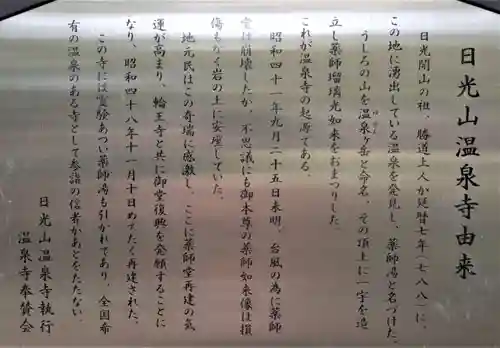 日光山温泉寺由来
日光開山の祖、勝道上人が延暦七年（七八八）に、
この地に湧出している温泉を発見し、薬師湯と名づけた。
うしろの山を温泉ヶ岳と命名、その頂上に一宇を造
立し薬師瑠璃光如来をおまつりした。
これが温泉寺の起源である。
昭和四十一年九月二十五日未明、台風の為に薬師
堂は崩壊したが、不思議にも御本尊の薬師如来像は損
傷もなく岩の上に安座していた。
地元民はこの奇瑞に感激し、ここに薬師堂再建の気
運が高まり、輪王寺と共に御堂復興を発願することに
なり、昭和四十八年十一月十日めでたく再建された。
この寺には霊験あつい薬師湯も引かれてあり、全国希
有の温泉のある寺として参詣の信者があとをたたない。
日光山温泉寺執行
温泉寺奉賛会